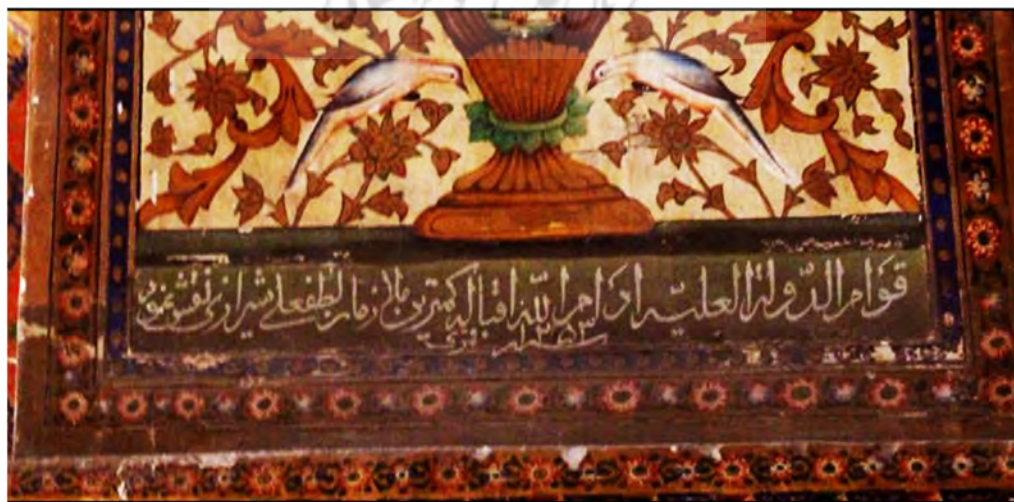 قوام الدّولة العلیّه ادام اللّه اقباله کمترین ملازمان لطفعلی شیرازی نقش نمود
سنه ۱۲۵۳